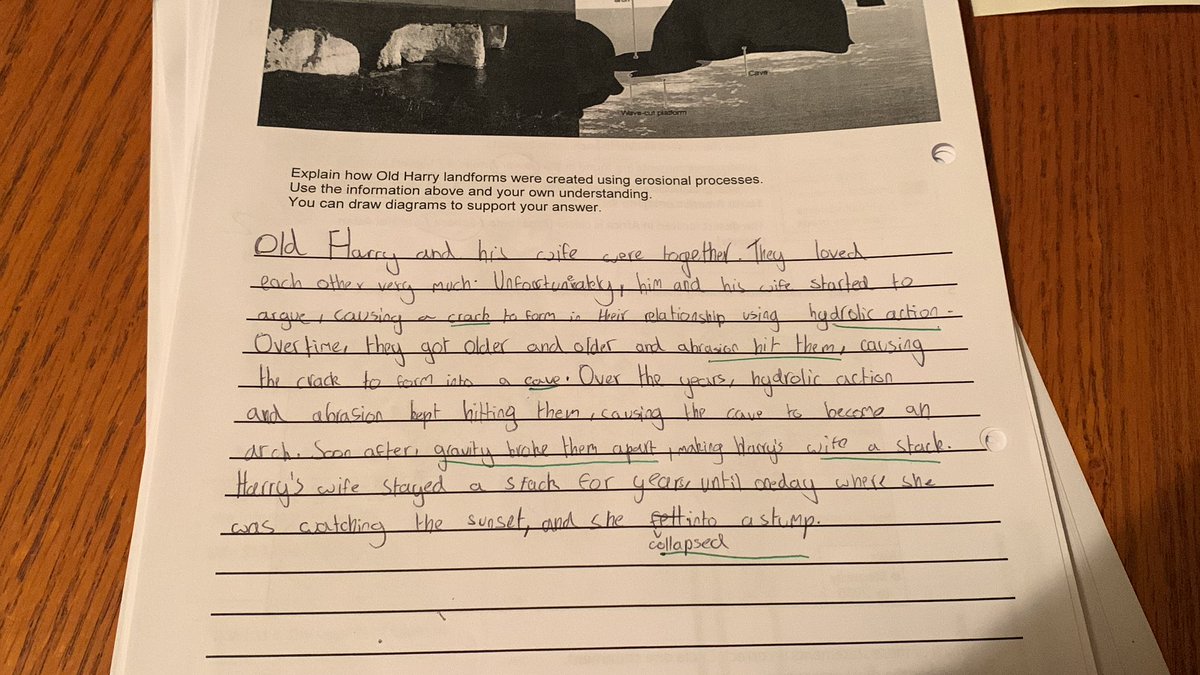 arch
Cave
Wave-cut platform
Explain how Old Harry landforms were created using erosional processes.
Use the information above and your own understanding.
You can draw diagrams to support your answer.
Old Harry and his wife were together. They loved
each other very much. Unfortuniatly, him and his wife started to
argue, causing a crack to form in their relationship using hydrolic action.
Overtime, they got older and older and abrasion hit them, causing
the crack to form into a cave. Over the years, hydrolic action
and abrasion kept hitting them, causing the cave to become an
arch. Soon after, gravity broke them apart, making Harry's wife a stack.
Harry's wife stayed a stack for years, until oneday where she
was watching the sunset, and she fell into a stump.
collapsed